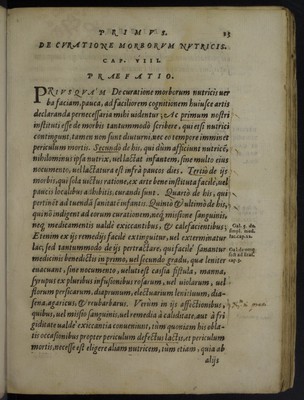 PRIMVS. 23
DE CVRATIONE MORBORVM NVTRICIS.
CAP. VIII.
PRAEFATIO.
PRIVSQVAM De curatione morborum nutricis ver
ba faciam, pauca, ad faciliorem cognitionem huiusce artis
declaranda pernecessaria mihi uidentur; Ac primum nostri
instituti esse de morbis tantummodo scribere, qui etsi nutrici
contingunt, tamen non sunt diuturni, nec eo tempore imminet
periculum mortis. Secundò de his, qui dùm afficiunt nutricē,
nihilominus ipsa nutrix, uel lactat infantem, sine multo eius
nocumento, uel lactatura est infra paucos dies. Tertiò de ijs
morbis, qui sola uictus ratione, ex arte bene instituta facilè, uel
paucis localibus adhibitis, curandi sunt. Quartò de his, qui
pertinēt ad tuendā sanitatē infantis. Quintò & ultimò de his,
qui nō indigent ad eorum curationem, neq; missione sanguinis,
neq; medicamentis ualdè exiccantibus, & calefacientibus;
Etenim ex ijs remedijs facile extinguitur, uel exterminatur
lac; sed tantummodo de ijs pertractare, quae facilè sanantur
medicinis benedictis in primo, uel secundo gradu, quae leniter
euacuant, sine nocumento, ueluti est cassia fistula, manna,
syrupus ex pluribus infusionibus rosarum, uel uiolarum, uel
florum persicorum, diaprunum, electuarium lenitiuum, dia-
sena, agaricus, & rhubarbarus. Verùm in ijs affictionibus,
quibus, uel missio sanguinis, uel remedia à caliditate, aut à fri
giditate ualdè exiccantia conueniunt, tùm quoniam his obla-
tis occasionibus propter periculum defectus lactis, et periculum
mortis, necesse est eligere aliam nutricem, tùm etiam, quia ab
alijs
Gal. 5. de